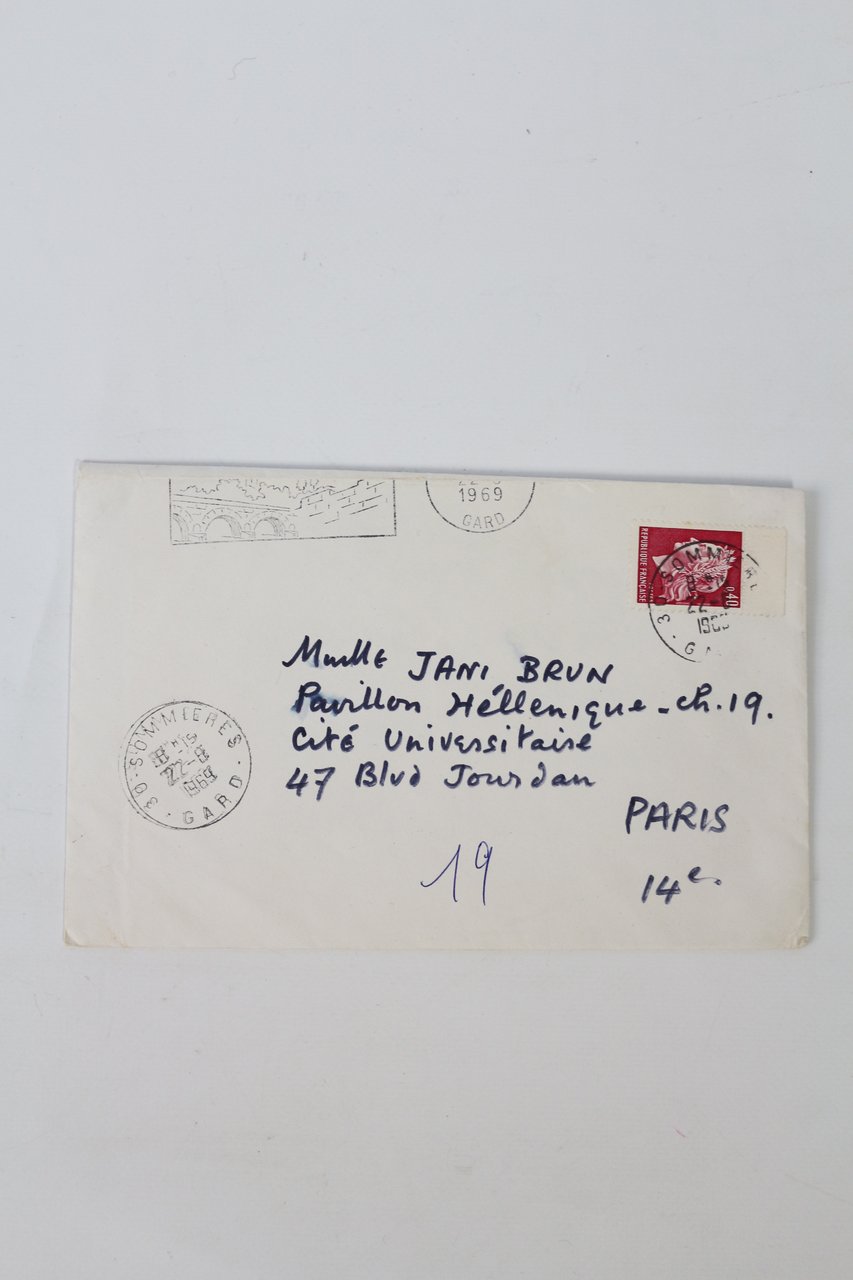 22-8
1969
GARD
REPUBLIQUE FRANÇAISE
0,40
30 SOMMIE
22
GA
Mmlle JANI BRUN
Pavillon Héllenique - ch. 19.
Cité Universitaire
47 Blvd Jourdan
PARIS
14e.
19
30 · SOMMIERES ·
22-8
1969
· GARD ·